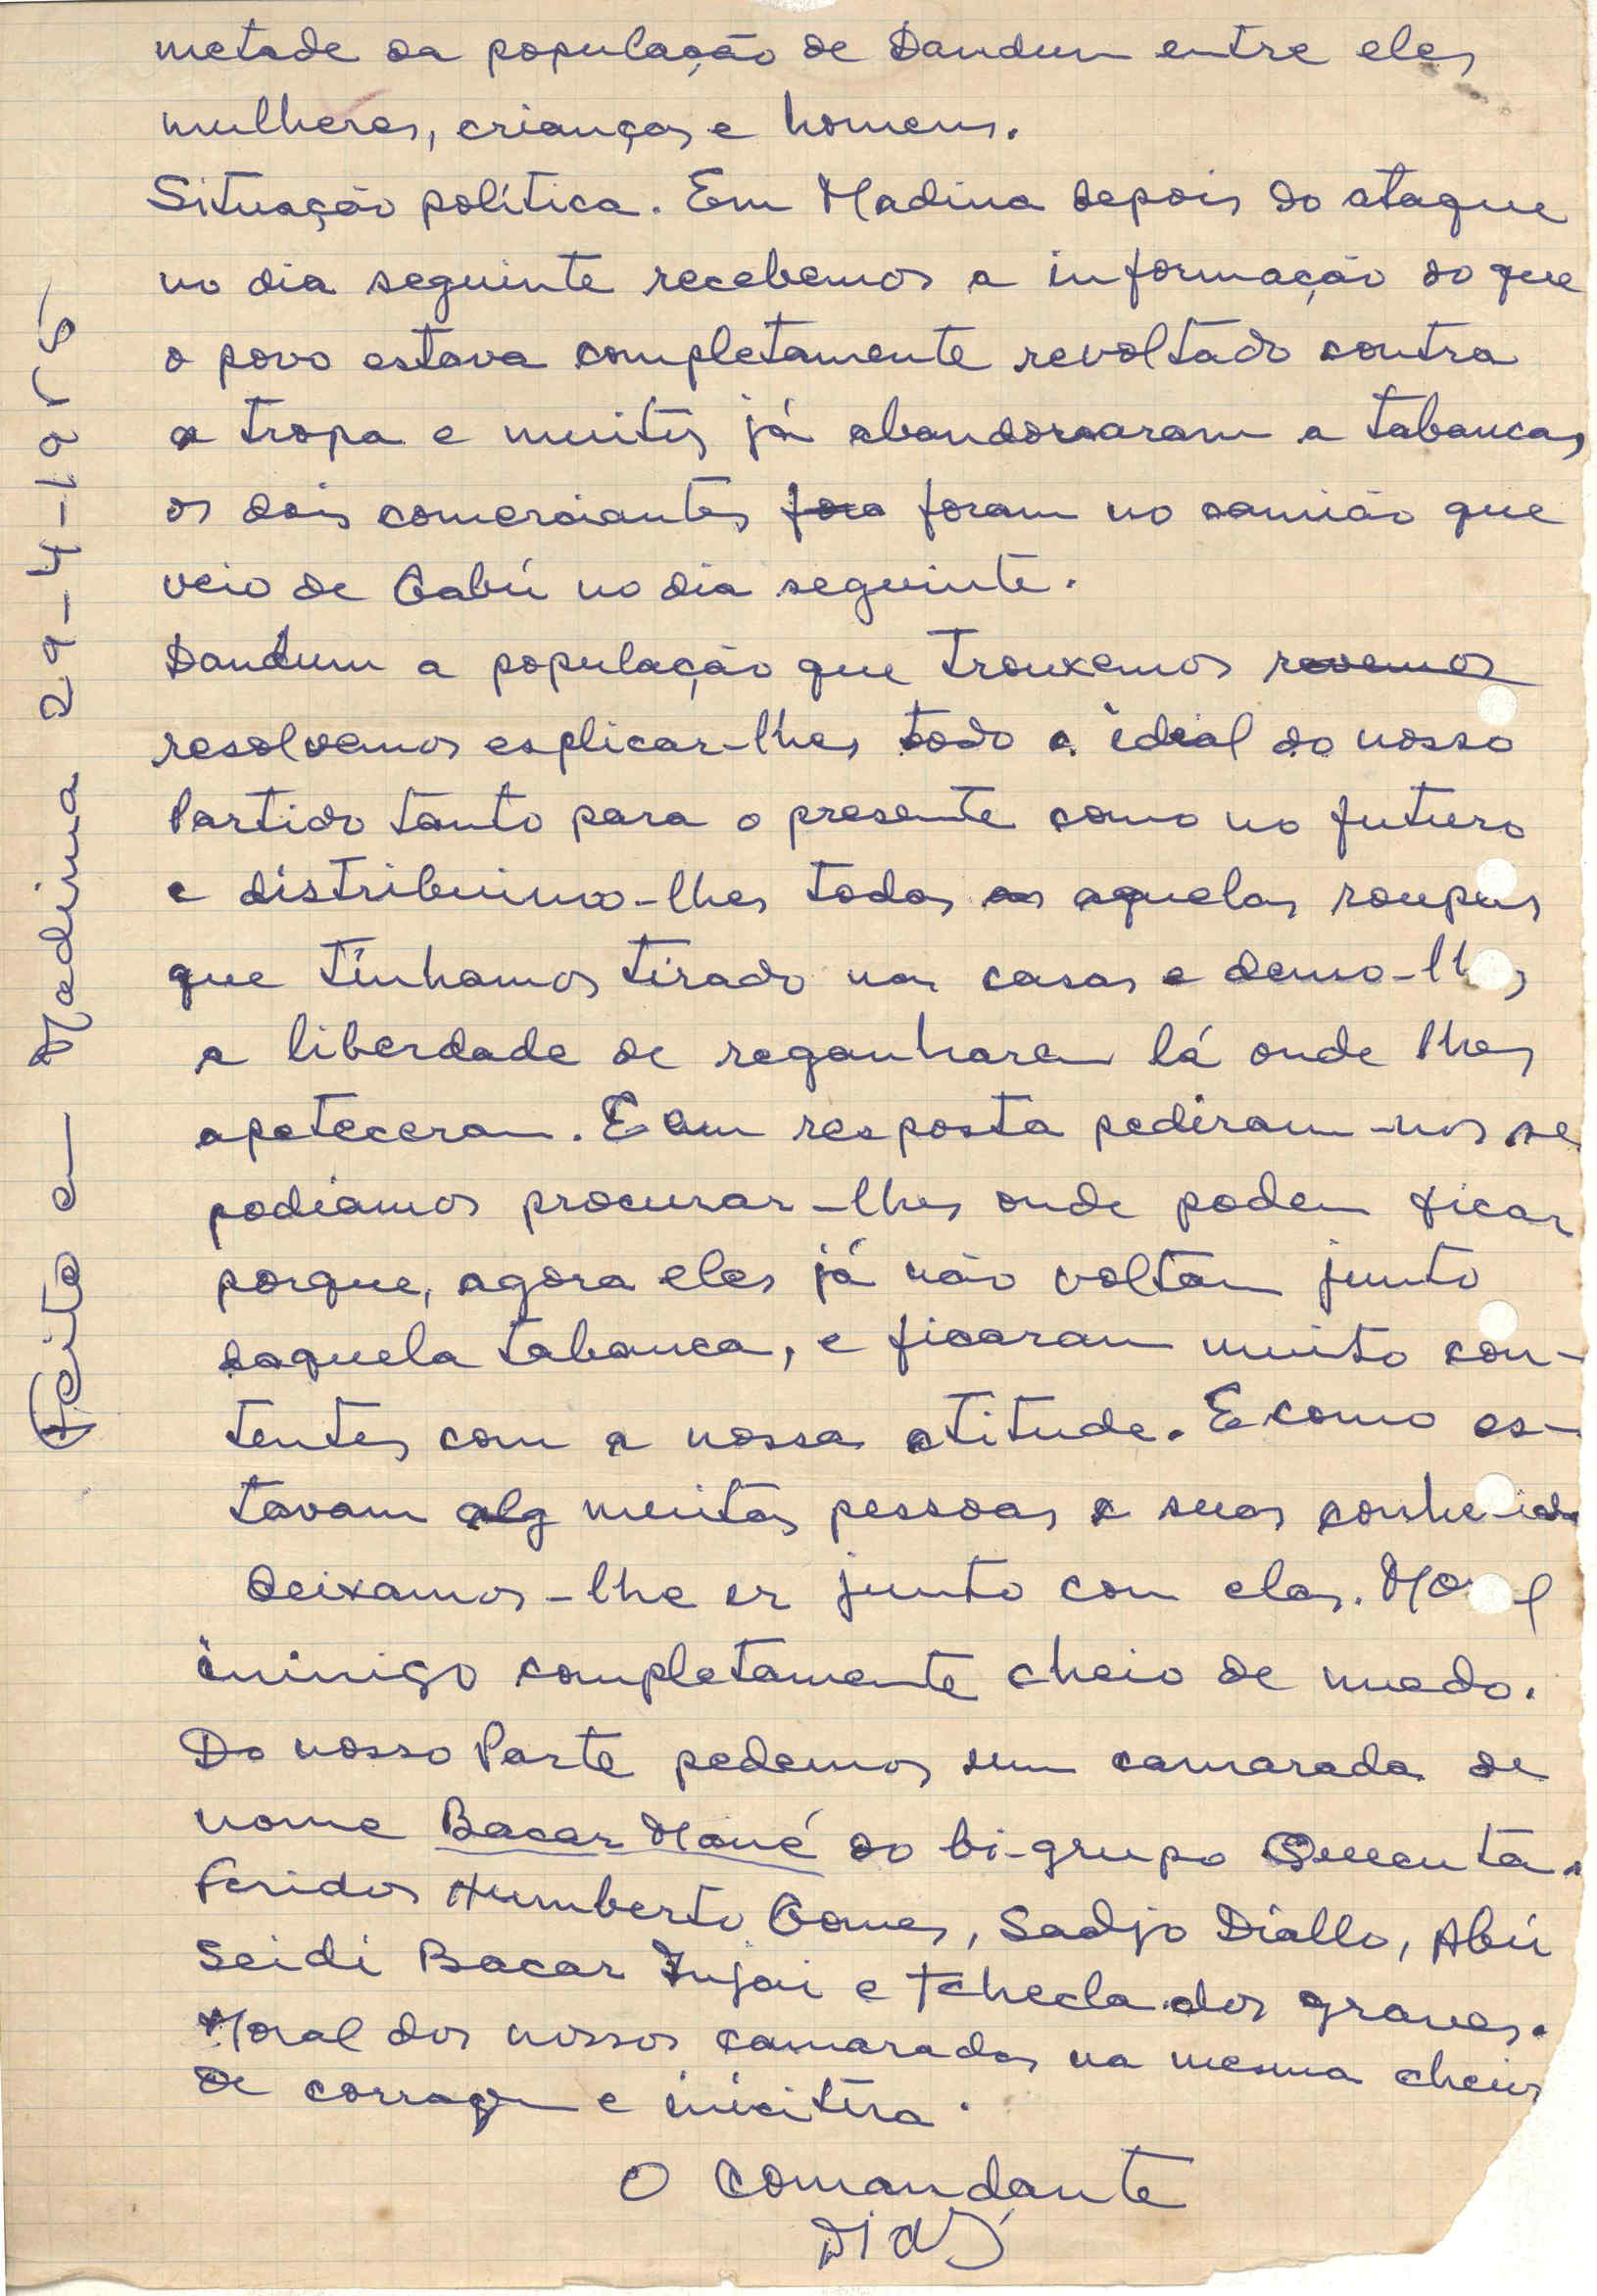 metade da população de Dandum entre eles
mulheres, crianças e homens.
Situação política. Em Madina depois do ataque
no dia seguinte recebemos a informação do que
o povo estava completamente revoltado contra
a tropa e muitos já abandonaram a tabancas
os dois comerciantes foram no camião que
veio de Gabú no dia seguinte.
Dandum a população que trouxemos
resolvemos esplicar-lhes todo o ideal do nosso
Partido tanto para o presente como no futuro
e distribuimo-lhes todas aquelas roupas
que tínhamos tirado nas casas e demo-lhes
a liberdade de reganharem lá onde lhes
apeteceram. E em resposta pediram-nos se
podíamos procurar-lhes onde podem ficar
porque, agora eles já não voltam junto
daquela tabanca, e ficaram muito con-
tentes com a nossa atitude. E como es-
tavam muitas pessoas e suas
deixamos-lhe ir junto com elas. Moral
inimigo completamente cheio de medo.
Do nosso Parte pedemos um camarada de
nome Bacar Mané do bi-grupo Quecuta.
Feridos Humberto Gomes, Sadjo Diallo, Abú
Seidi Bacar Injai e Tchecla dos graves.
Moral dos nossos camaradas na mesma cheios
de corragem e
O Comandante
Feito em Madina 29-4-